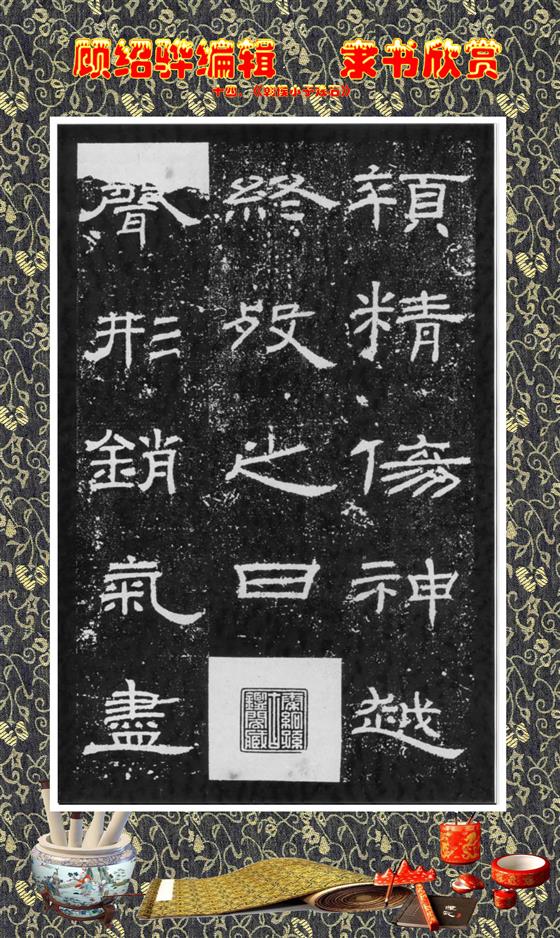 顾绍骅编辑 隶书欣赏
十四、《朝侯小子残石》
顇精傷神越
終歿之日
聲形銷氣盡